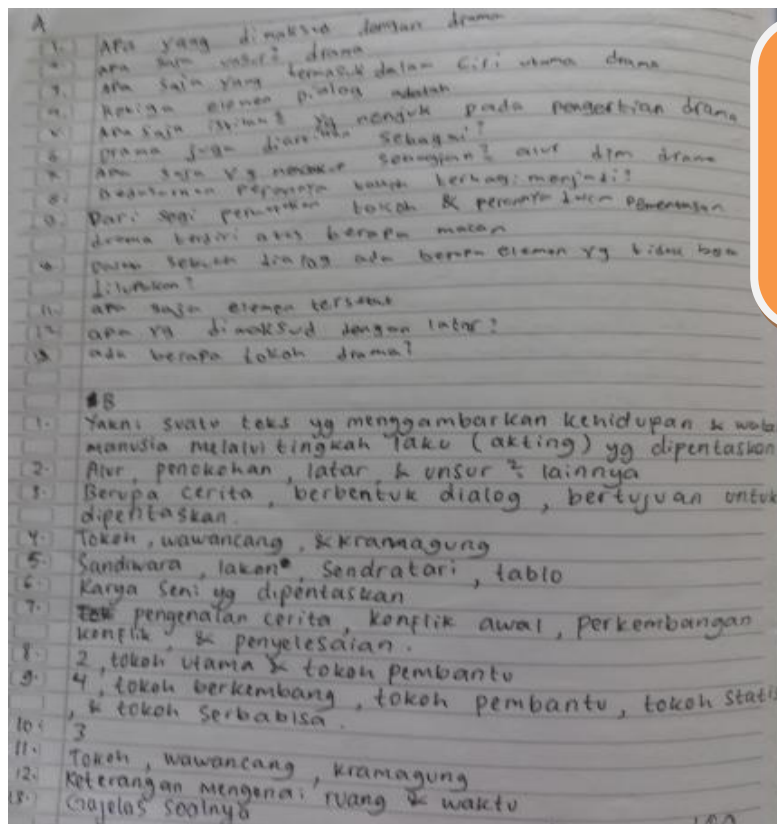 A
1. Apa yang dimaksud dengan drama
apa saja unsur² drama
3. apa saja yang termasuk dalam ciri utama drama
4. Ketiga elemen dialog adalah
Apa saja istilah² yg nonjuk pada pengertian drama
6 Drama juga diartikan sebagai?
apa saja yg sebagian² alur dlm drama
8. Berdasarkan perannya tokoh terbagi menjadi?
9. Dari segi tokoh & perannya dalam pementasan
drama terdiri atas berapa macam
dalam sebuah dialog ada berapa elemen yg tidak bisa
dilupakan?
11. apa saja elemen tersebut
12 apa yg dimaksud dengan latar?
13 ada berapa tokoh drama?
B
1. Yakni suatu teks yg menggambarkan kehidupan &
manusia melalui tingkah laku (akting) yg dipentaskan
2. Alur, penokohan, latar, & unsur² lainnya
3. Berupa cerita, berbentuk dialog, bertujuan untuk
dipentaskan.
4. Tokoh, wawancang, & kramagung
5. Sandiwara, lakon, sendratari, tablo
6. Karya seni yg dipentaskan
7. pengenalan cerita, konflik awal, perkembangan
konflik, & penyelesaian.
8. 2, tokoh utama & tokoh pembantu
9. 4, tokoh berkembang, tokoh pembantu, tokoh statis
, & tokoh serbabisa.
10. 3
11. Tokoh, wawancang, kramagung
12. Keterangan mengenai ruang & waktu
13. Gajelas soalnya